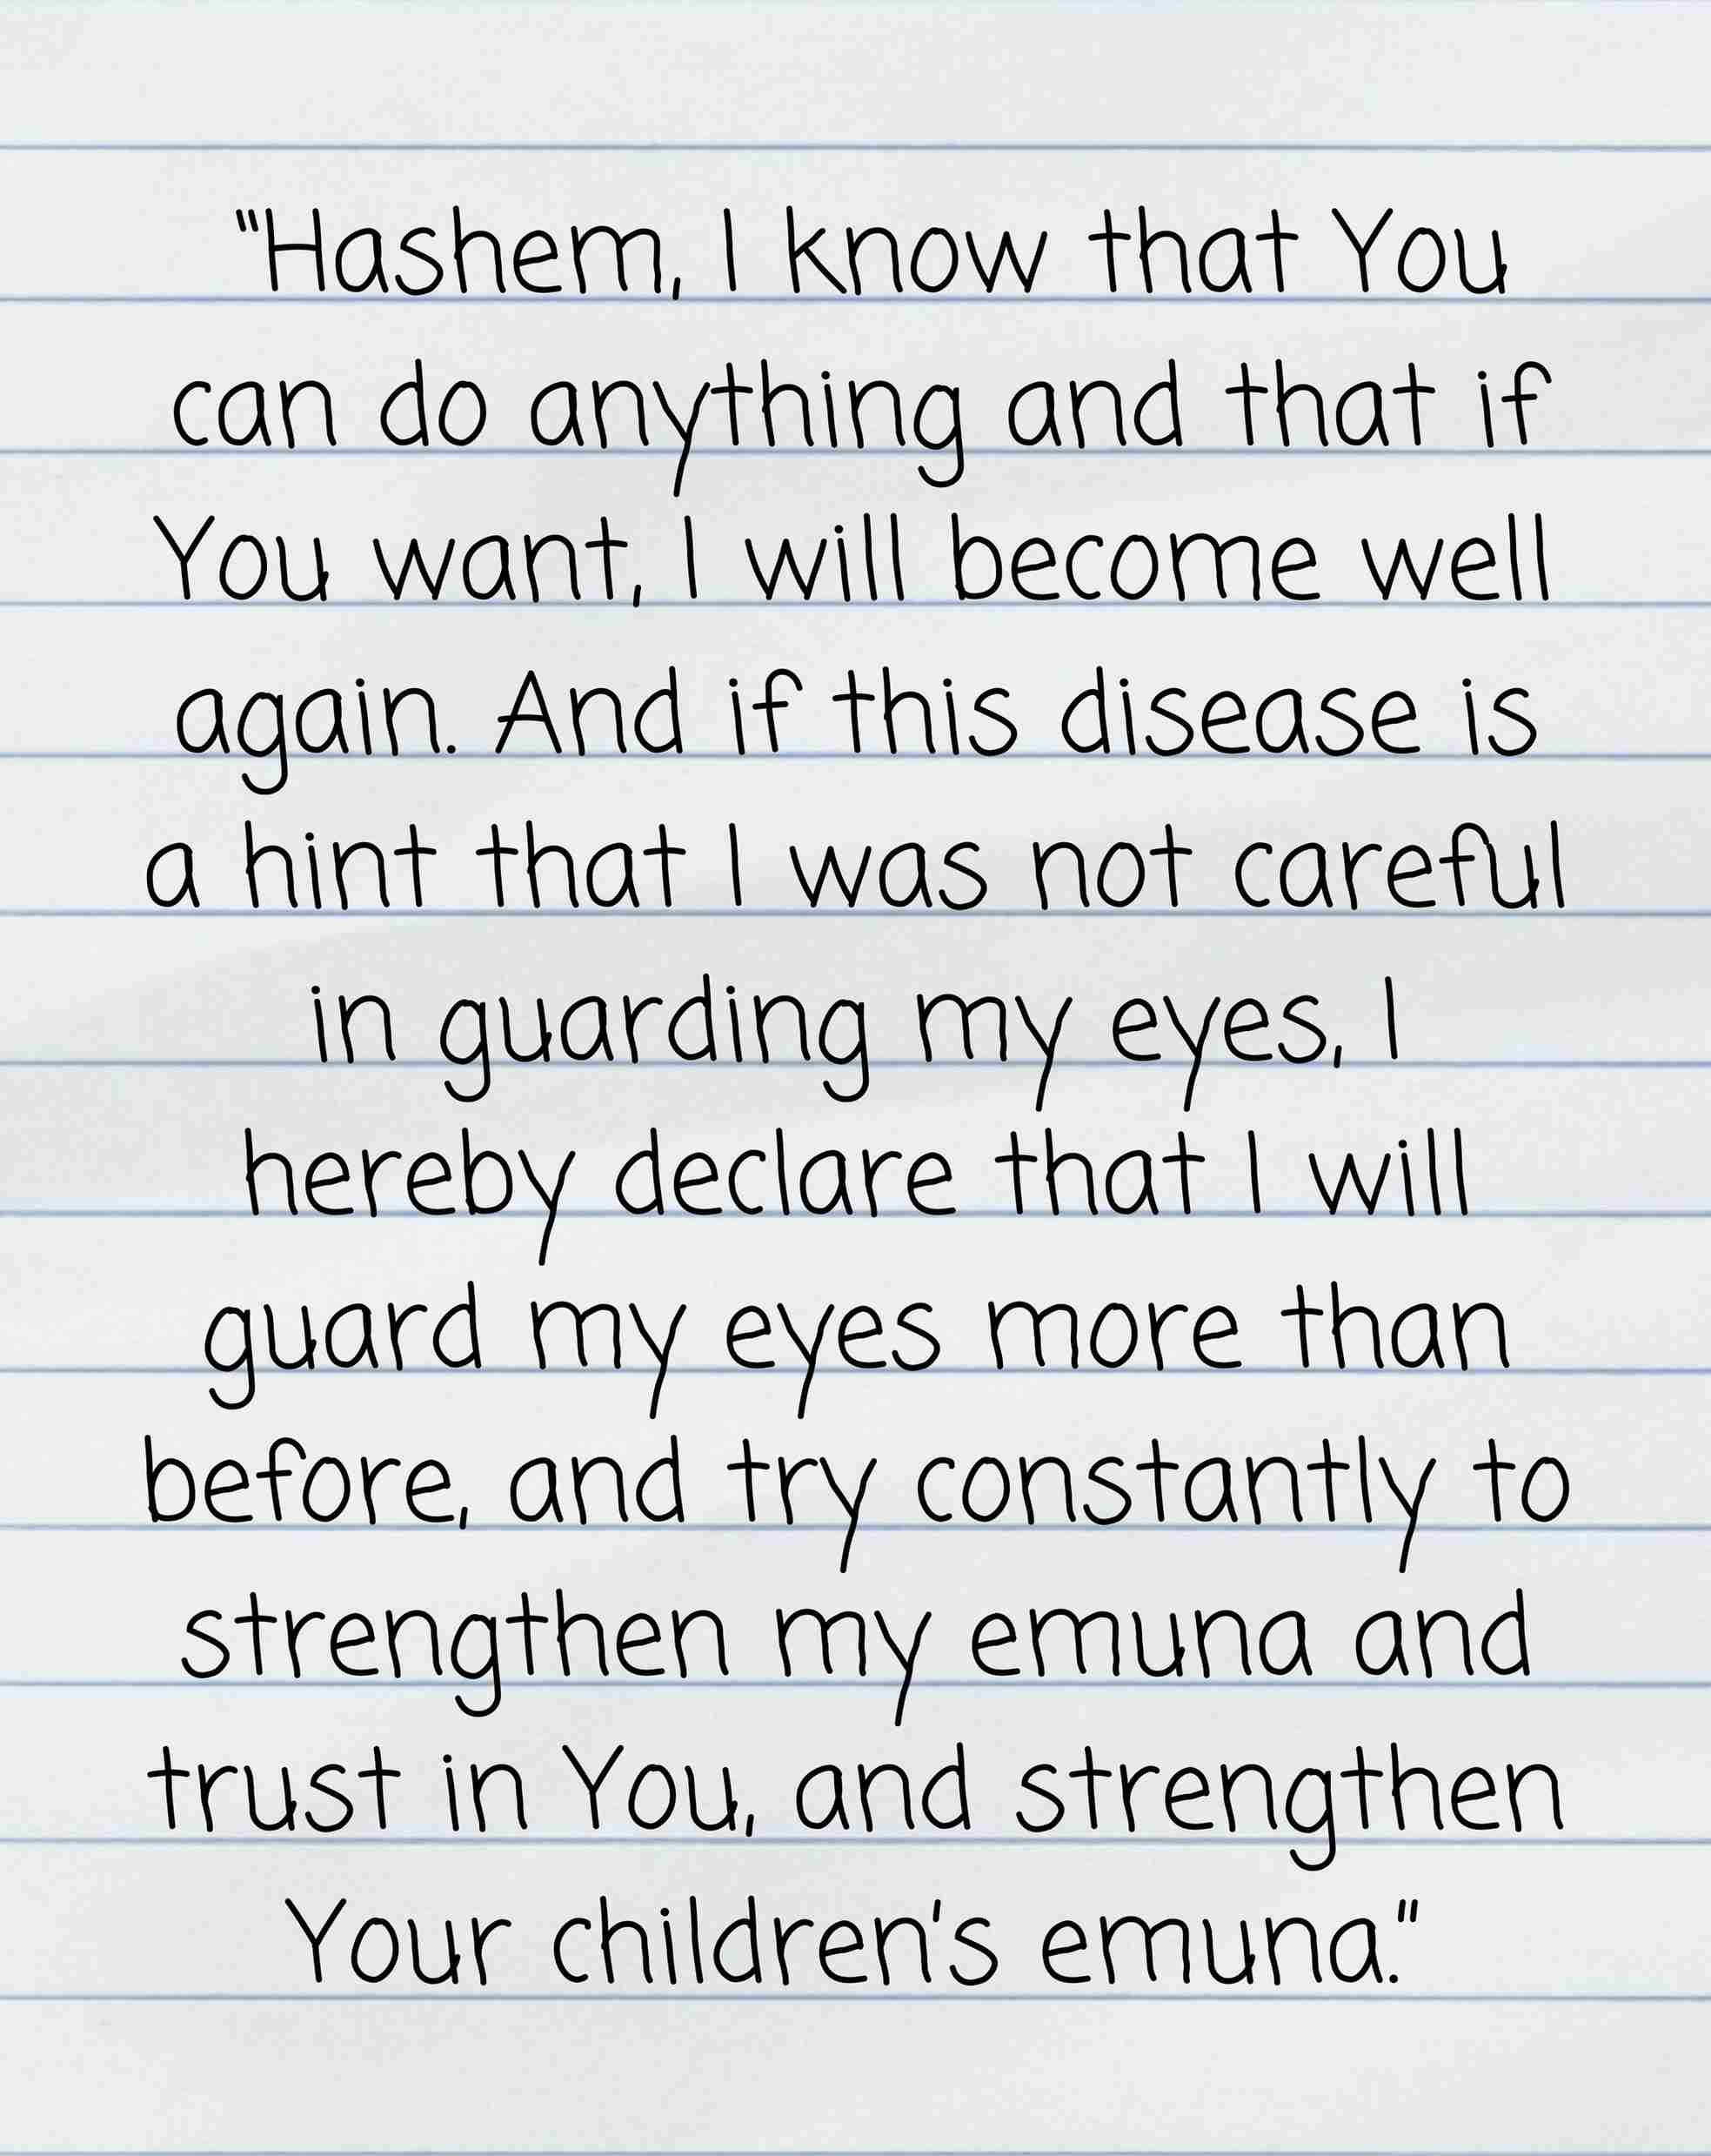 "Hashem, I know that You
can do anything and that if
You want, I will become well
again. And if this disease is
a hint that I was not careful
in guarding my eyes, I
hereby declare that I will
guard my eyes more than
before, and try constantly to
strengthen my emuna and
trust in You, and strengthen
Your children's emuna."